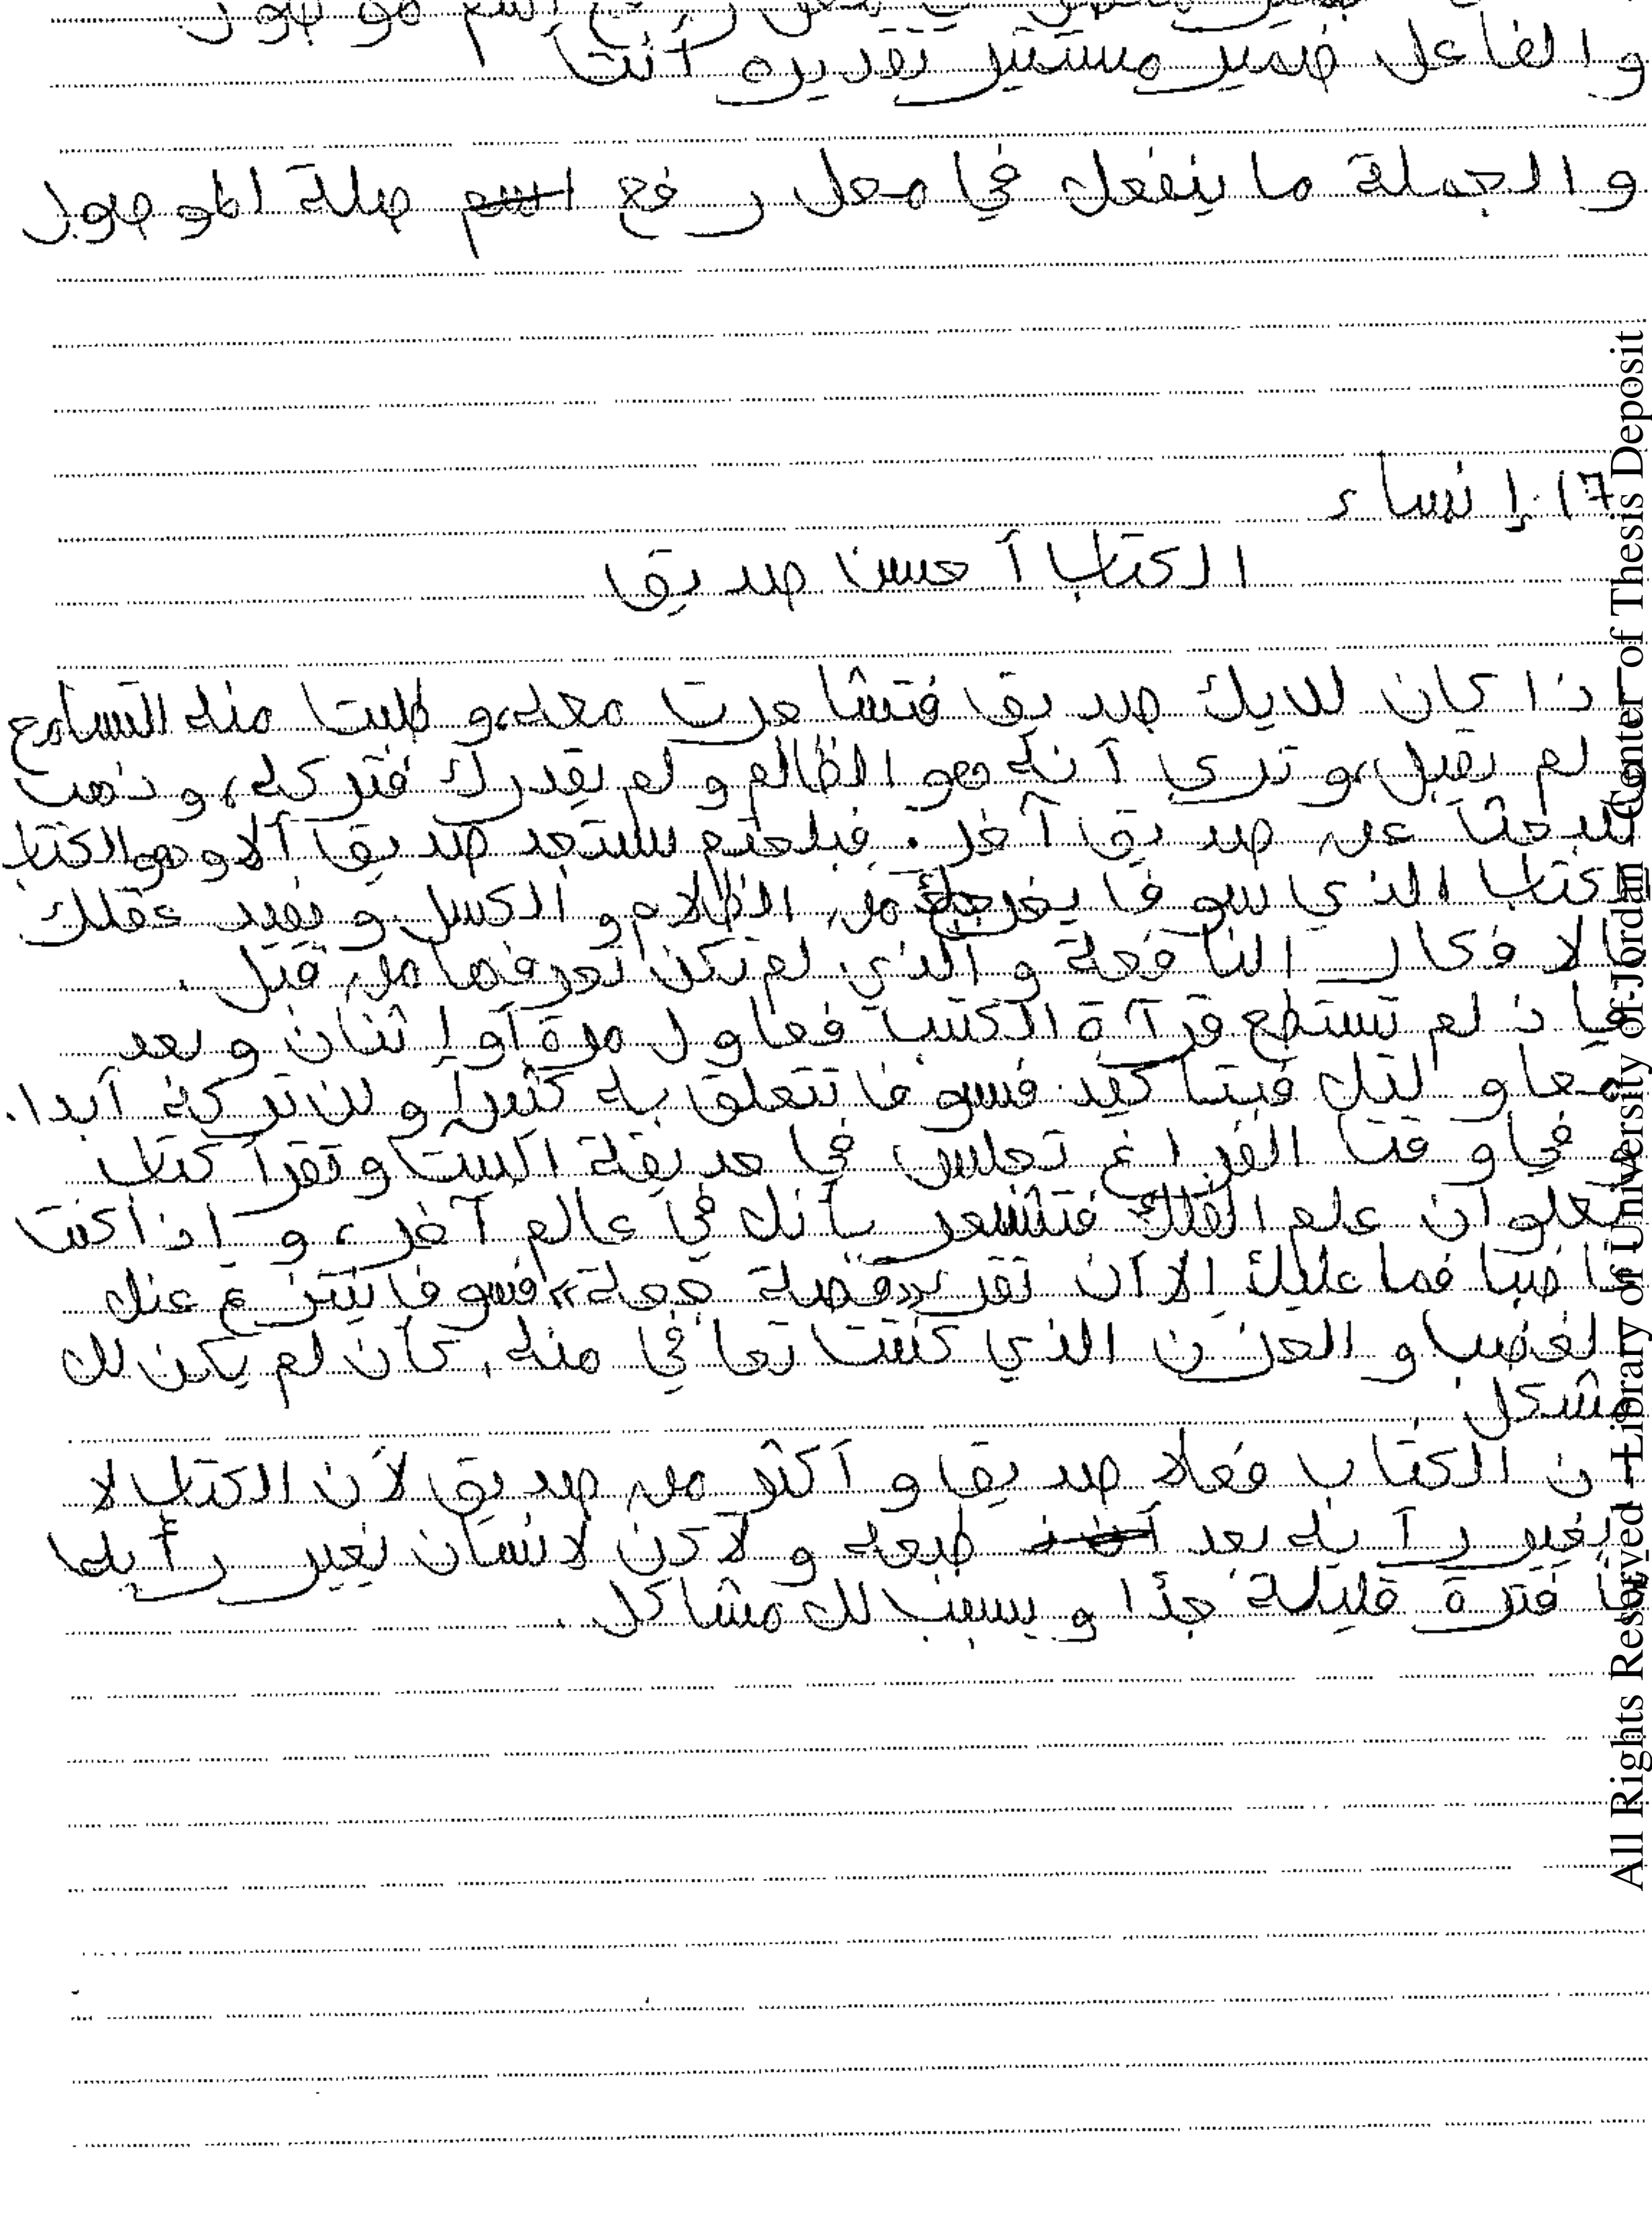 والفاعل ضمير مستتير تقديره أنت
والجملة ما ينفعل في محل رفع اسم صلة الموصول
17. إنساء
الكتاب أحسن صديق
إذا كان لديك صديق فتشاجرت معه، و طلبت منه التسامح
لم يقبل، و ترى أنه هو الظالم و لم يقدرك فتركه، و ذهبت
للبحث عن صديق آخر. فبلحتم ستجد صديق ألا و هو الكتاب
الكتاب الذي سوف يخرجك من الظلام و الكسل و يفيد عقلك
بالافكار النافعة و الذي لم تكن تعرفها من قبل.
فإذ لم تستطع قرآة الكتب فحاول مرة أو إثنان و بعد
محاولتك فبتأكيد فسوف تتعلق به كثيراً و لن تركه أبدا.
و في وقت الفراغ تجلس في حديقة البيت و تقرأ كتاب
بعلوان علم الفلك فتشعر بأنك في عالم آخر، و إذا كنت
غاضبا فما عليك إلا أن تقرء «قصة جحة» فسوف ينتزع عنك
لغضب و الحزن الذي كنت تعاني منه. كأن لم يكن لك
مشكل.
إن الكتاب فعلا صديق و أكثر من صديق لأن الكتاب لا
يغير رأيه بعد طبعه و لاكن لانسان يغير رأيه
فترة قليلة جدًا و يسبب لك مشاكل.
All Rights Reserved - Library of University of Jordan - Center of Thesis Deposit